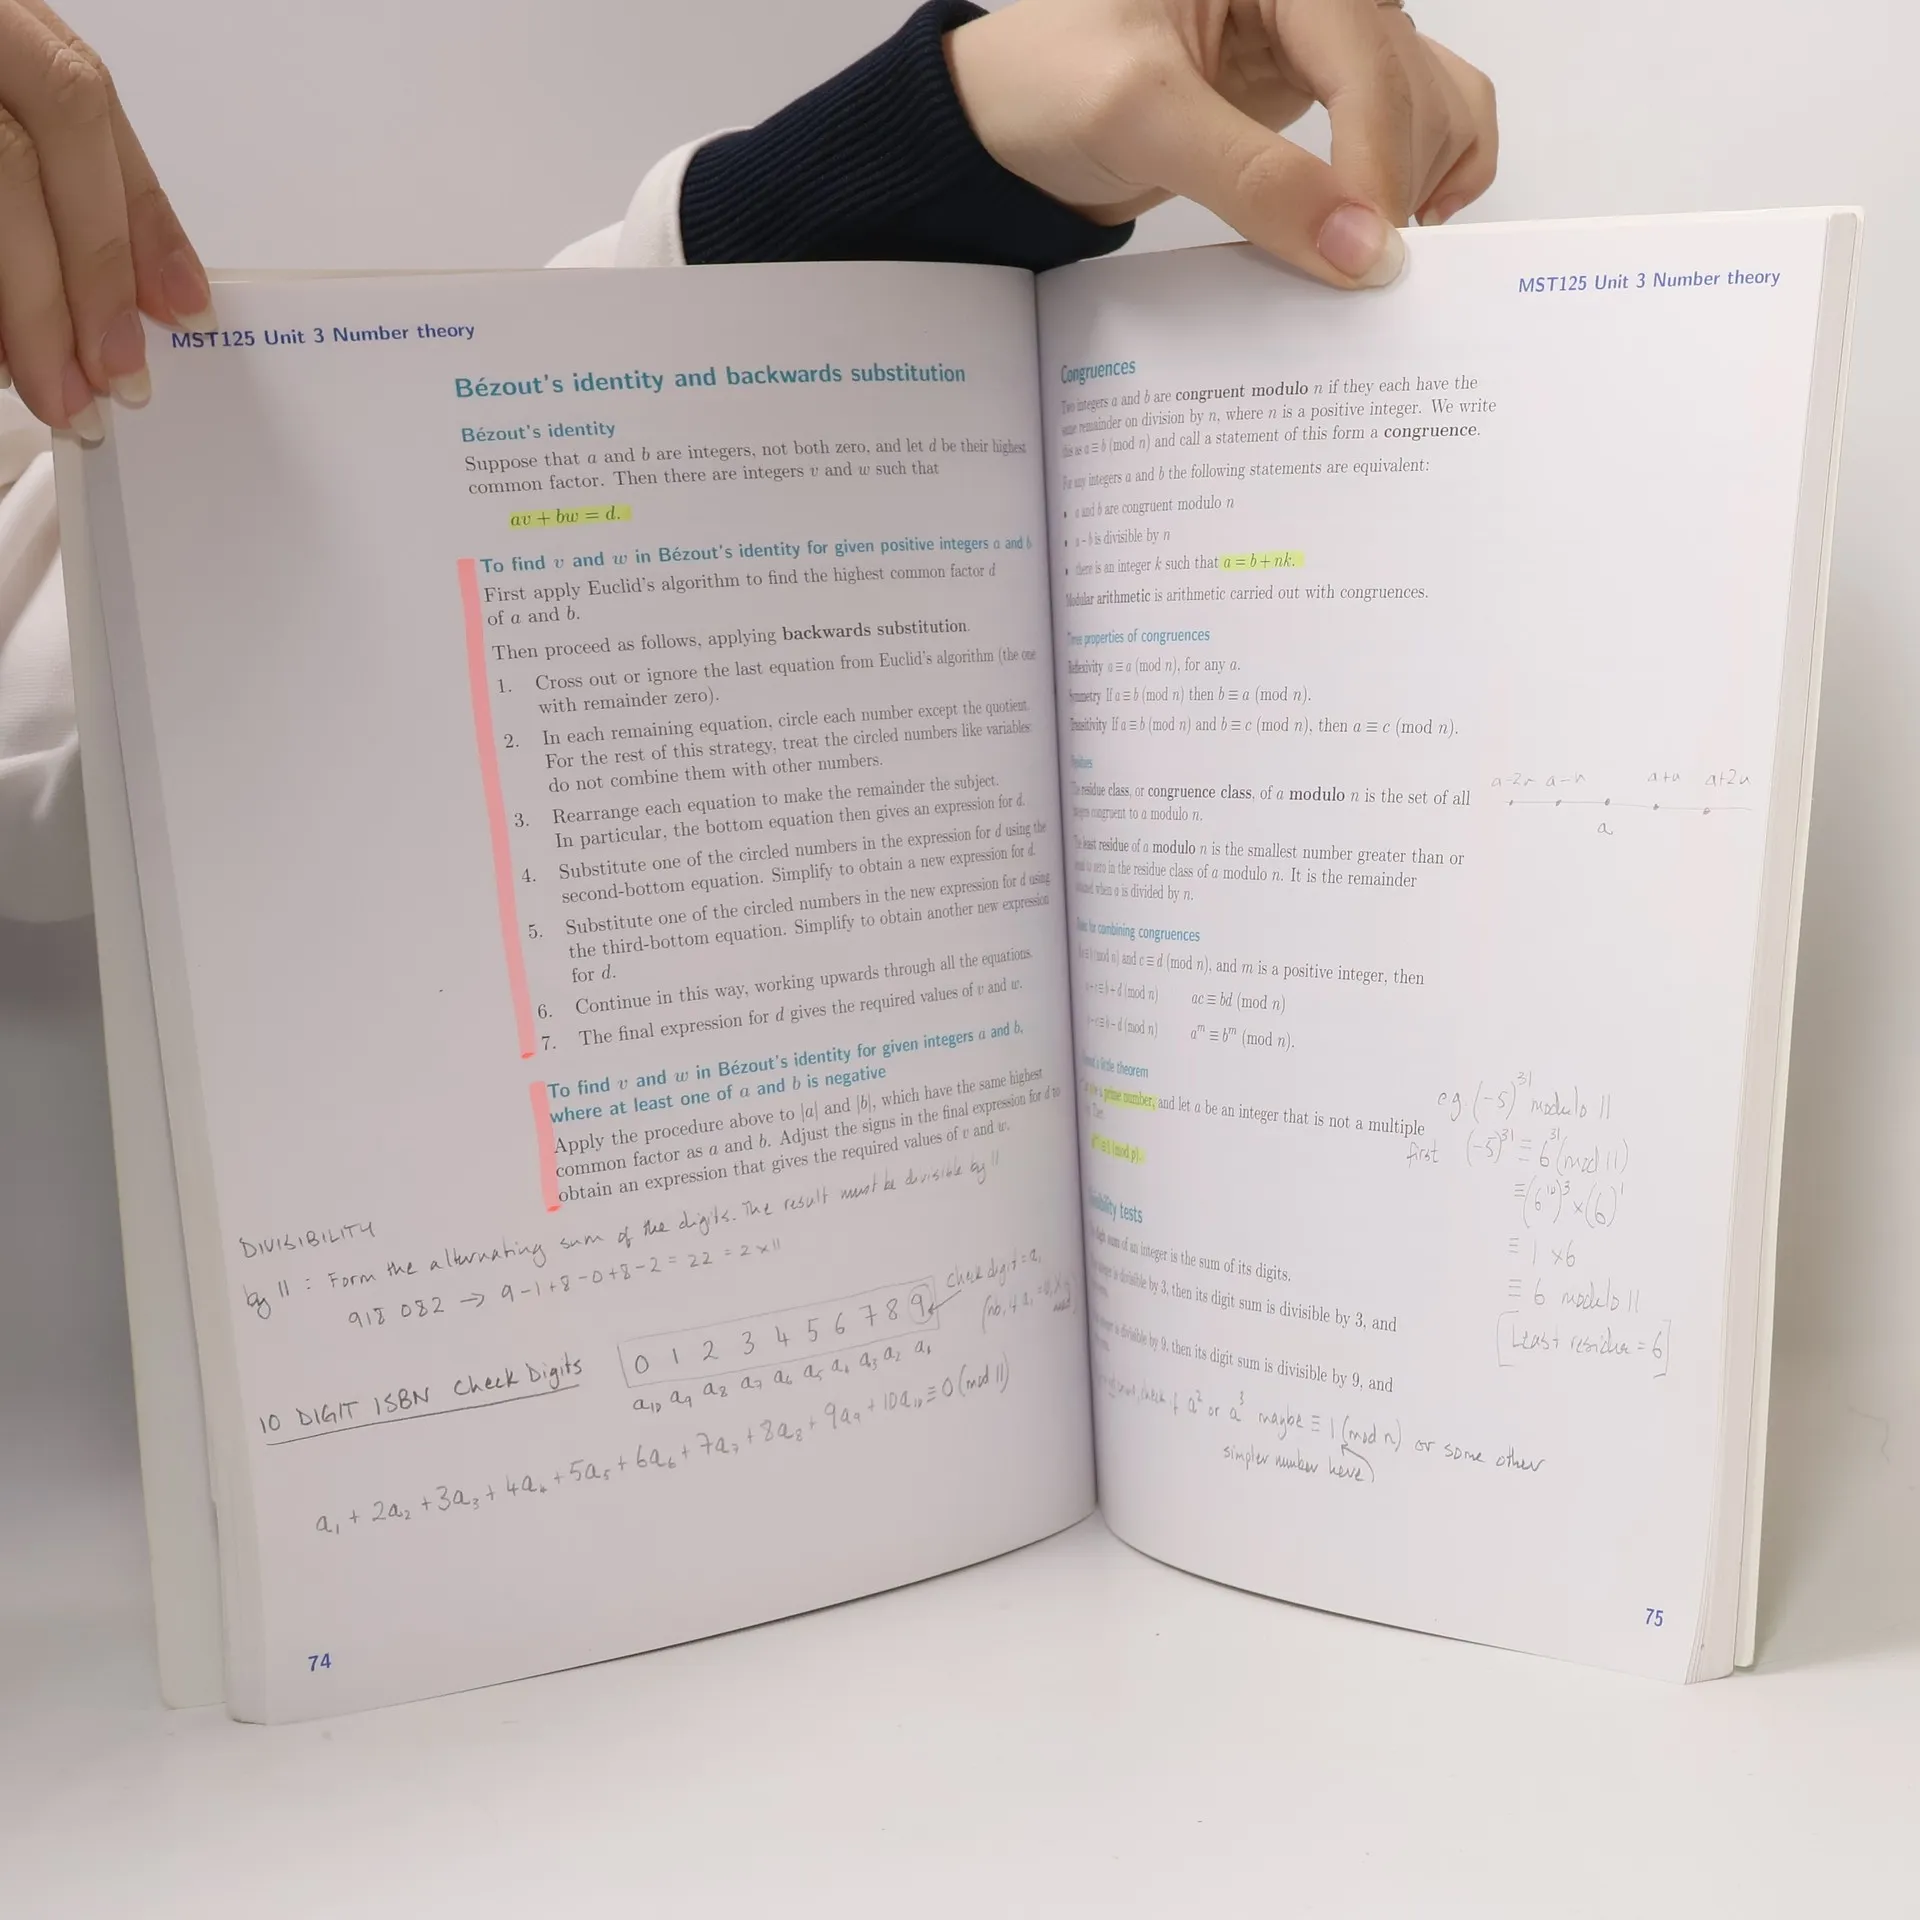 MST125 Unit 3 Number theory
Bézout's identity and backwards substitution
Bézout's identity
Suppose that a and b are integers, not both zero, and let d be their highest
common factor. Then there are integers v and w such that
av + bw = d.
To find v and w in Bézout's identity for given positive integers a and b
First apply Euclid's algorithm to find the highest common factor d
of a and b.
Then proceed as follows, applying backwards substitution.
1. Cross out or ignore the last equation from Euclid's algorithm (the one
with remainder zero).
2. In each remaining equation, circle each number except the quotient.
For the rest of this strategy, treat the circled numbers like variables:
do not combine them with other numbers.
3. Rearrange each equation to make the remainder the subject.
In particular, the bottom equation then gives an expression for d.
4. Substitute one of the circled numbers in the expression for d using the
second-bottom equation. Simplify to obtain a new expression for d.
5. Substitute one of the circled numbers in the new expression for d using
the third-bottom equation. Simplify to obtain another new expression
for d.
6. Continue in this way, working upwards through all the equations.
7. The final expression for d gives the required values of v and w.
To find v and w in Bézout's identity for given integers a and b,
where at least one of a and b is negative
Apply the procedure above to |a| and |b|, which have the same highest
common factor as a and b. Adjust the signs in the final expression for d to
obtain an expression that gives the required values of v and w.
DIVISIBILITY
by 11 : Form the alternating sum of the digits. The result must be divisible by 11
918 082 → 9-1+8-0+8-2 = 22 = 2×11
10 DIGIT ISBN Check Digits
0 1 2 3 4 5 6 7 8 9
check digit = a₁
a₁₀ a₉ a₈ a₇ a₆ a₅ a₄ a₃ a₂ a₁
a₁ + 2a₂ + 3a₃ + 4a₄ + 5a₅ + 6a₆ + 7a₇ + 8a₈ + 9a₉ + 10a₁₀ ≡ 0 (mod 11)
74
MST125 Unit 3 Number theory
Congruences
Two integers a and b are congruent modulo n if they each have the
same remainder on division by n, where n is a positive integer. We write
this as a ≡ b (mod n) and call a statement of this form a congruence.
For any integers a and b the following statements are equivalent:
• a and b are congruent modulo n
• a − b is divisible by n
• there is an integer k such that a = b + nk.
Modular arithmetic is arithmetic carried out with congruences.
properties of congruences
Reflexivity a ≡ a (mod n), for any a.
Symmetry If a ≡ b (mod n) then b ≡ a (mod n).
Transitivity If a ≡ b (mod n) and b ≡ c (mod n), then a ≡ c (mod n).
Residues
The residue class, or congruence class, of a modulo n is the set of all
integers congruent to a modulo n.
a-2n a-n a+n a+2n
a
The least residue of a modulo n is the smallest number greater than or
equal to zero in the residue class of a modulo n. It is the remainder
when a is divided by n.
Rules for combining congruences
(mod n) and c ≡ d (mod n), and m is a positive integer, then
a + c ≡ b + d (mod n) ac ≡ bd (mod n)
a − c ≡ b − d (mod n) aᵐ ≡ bᵐ (mod n).
little theorem
prime number, and let a be an integer that is not a multiple
≡ 1 (mod p).
eg. (-5)³¹ modulo 11
first (-5)³¹ ≡ 6³¹ (mod 11)
≡ (6¹⁰)³ × (6)¹
≡ 1 × 6
≡ 6 modulo 11
[Least residue = 6]
Divisibility tests
digit sum of an integer is the sum of its digits.
is divisible by 3, then its digit sum is divisible by 3, and
is divisible by 9, then its digit sum is divisible by 9, and
check if a² or a³ maybe ≡ 1 (mod n) or some other
simpler number here)
75